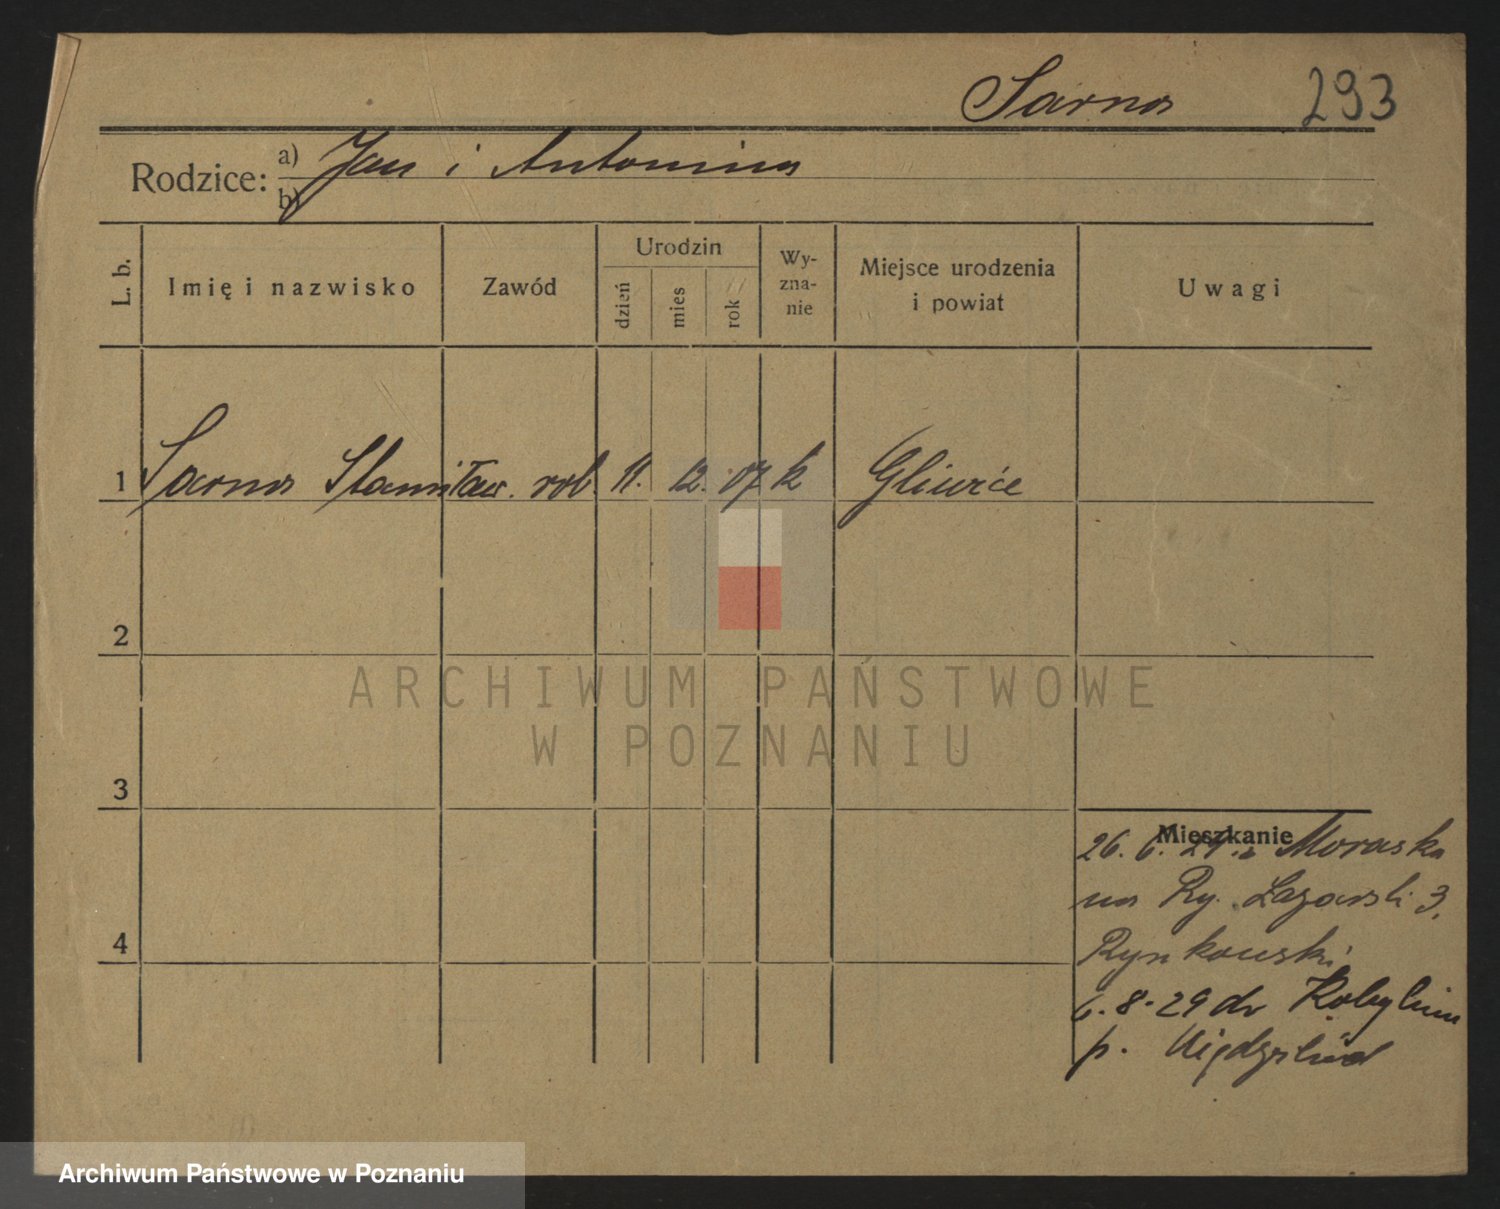 Sarna 293
Rodzice: a) Jan i Antonina
b)
L. b. Imię i nazwisko Zawód Urodzin dzień mies rok Wy-zna-nie Miejsce urodzenia i powiat Uwagi
1 Sarna Stanisław. rob. 11. 12. 07 k Gliwice
2
ARCHIWUM PAŃSTWOWE
W POZNANIU
3
Mieszkanie
26. 6. 29. z Moraska
na Ry. Łazarski 3,
Rynkowski
6. 8. 29 do Kobylina
p. Międzychód
4
Archiwum Państwowe w Poznaniu